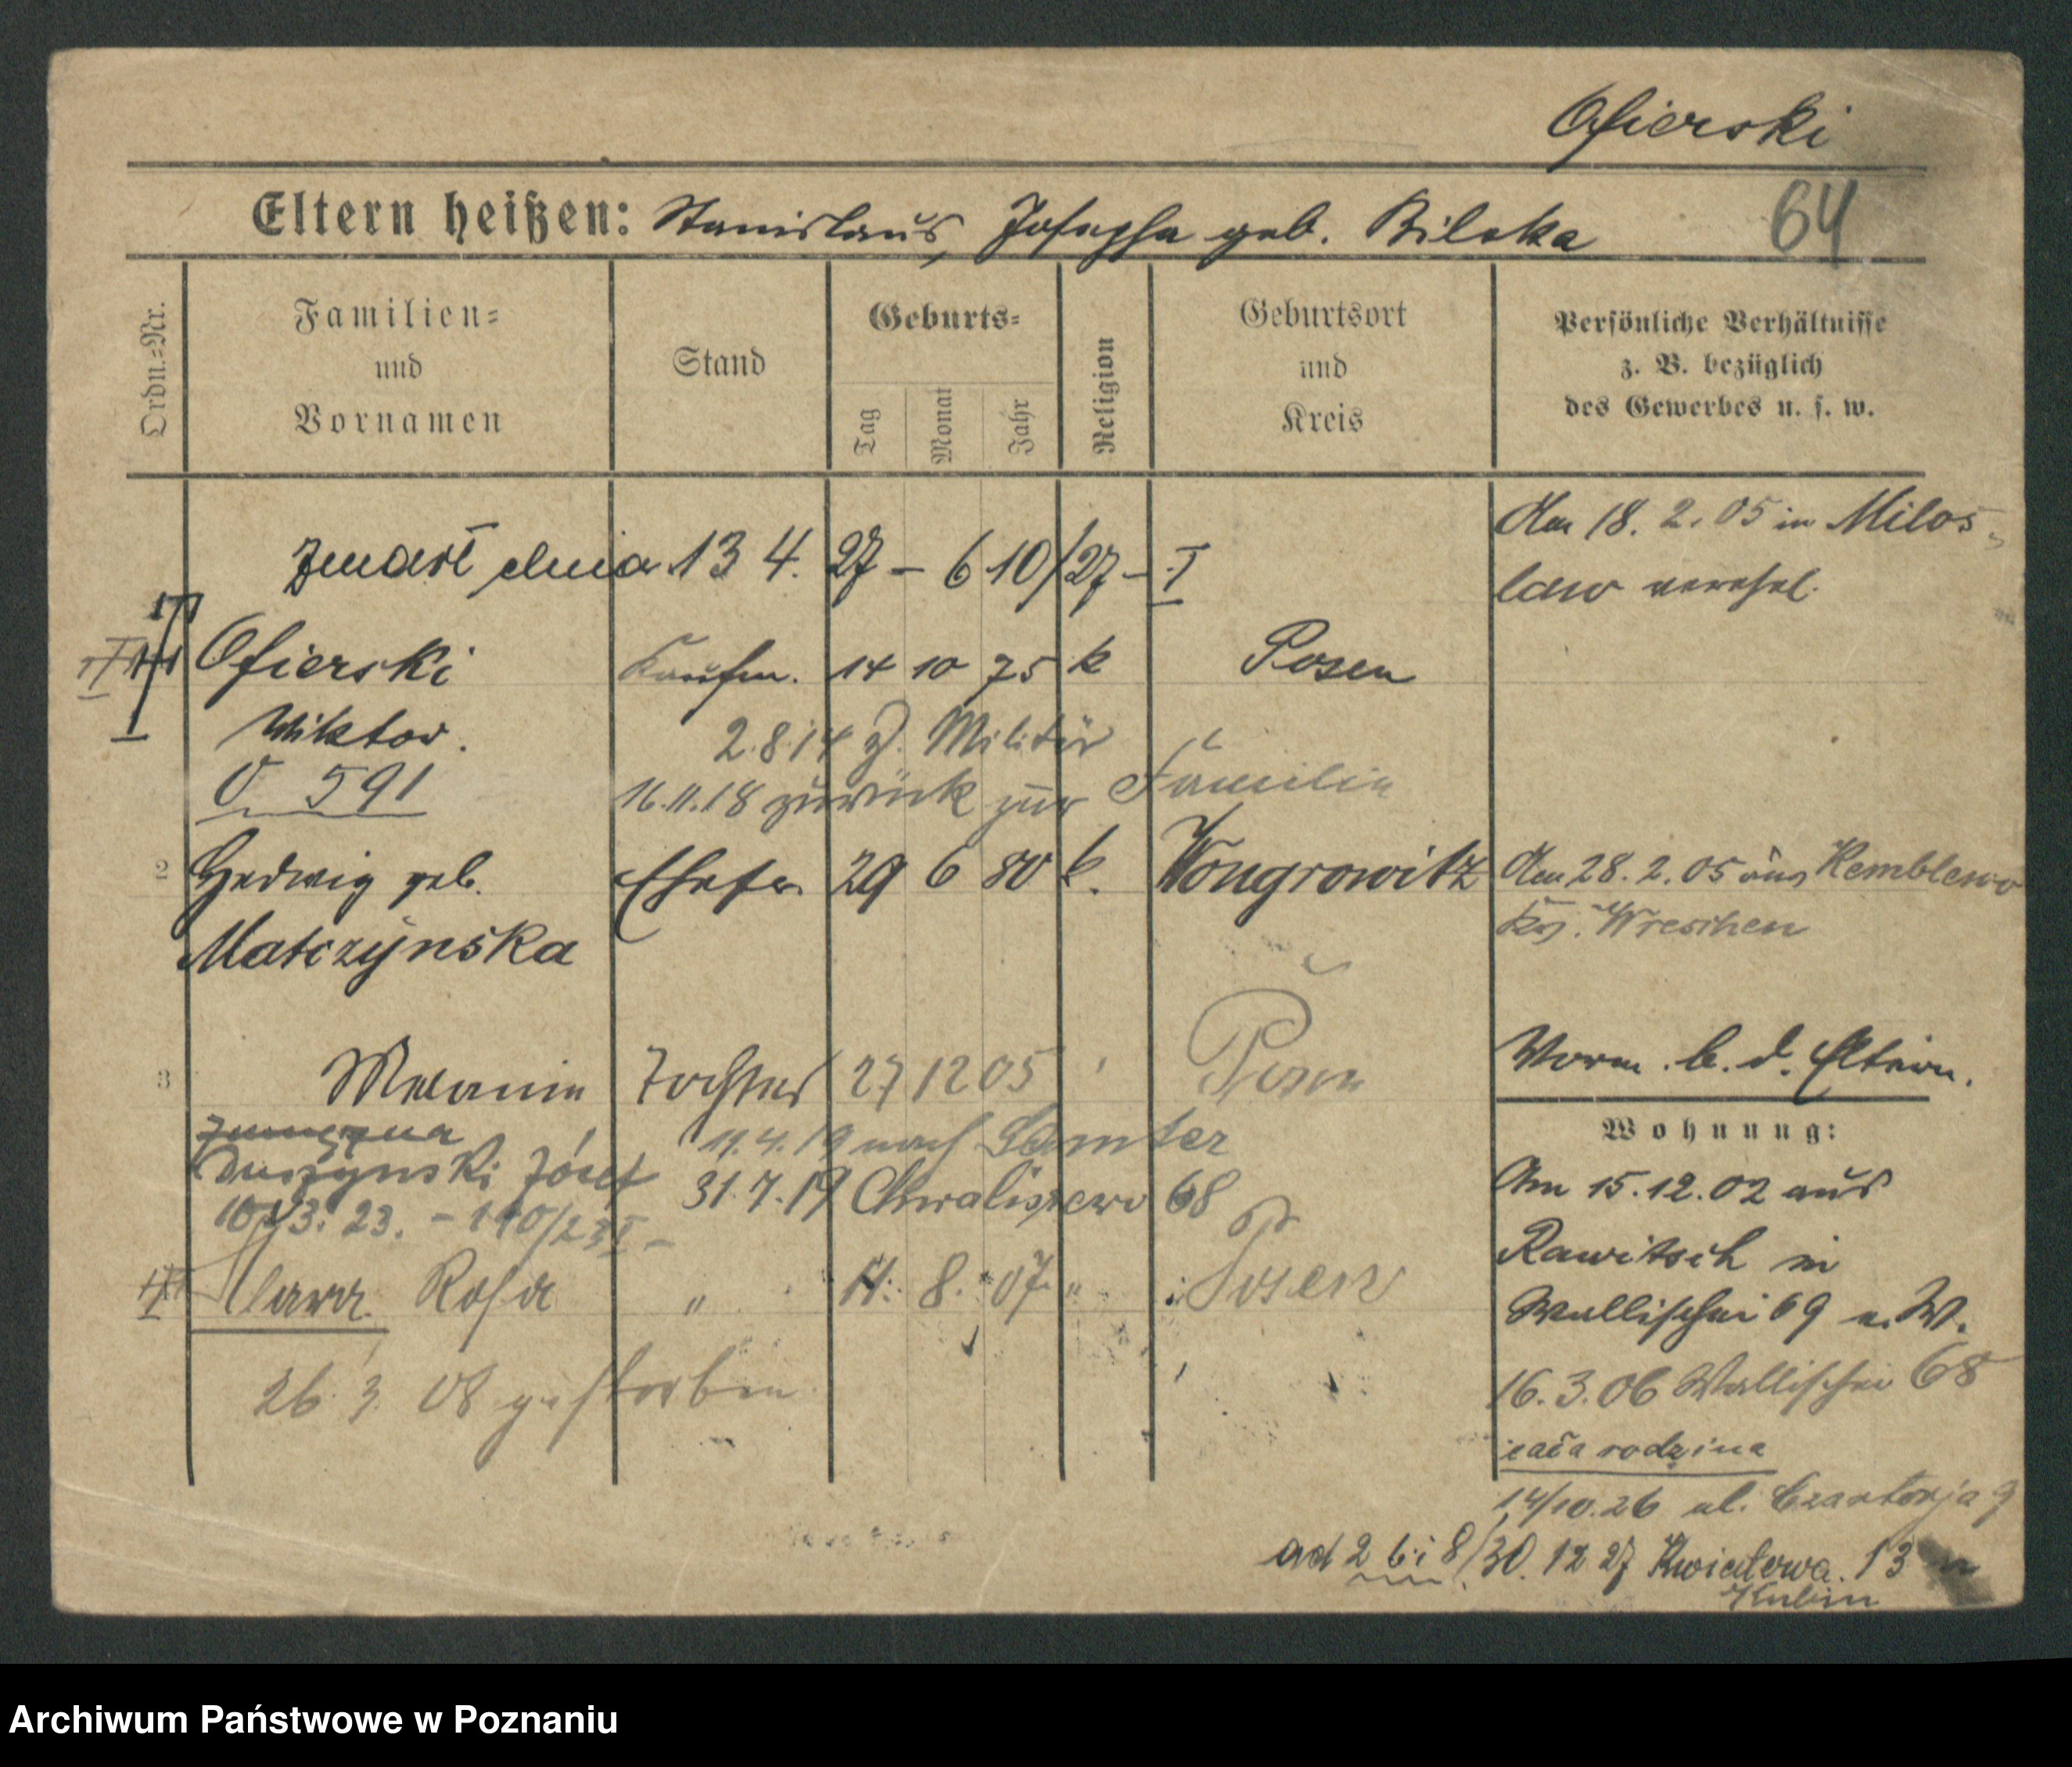 Ofierski
Eltern heißen: Stanislaus, Josepha geb. Bilska
64
Ordn.=Nr.
Familien=
und
Vornamen
Stand
Geburts=
Tag
Monat
Jahr
Religion
Geburtsort
und
Kreis
Persönliche Verhältnisse
z. B. bezüglich
des Gewerbes u. s. w.
Am 18. 2. 05 in Milos-
law verehel.
Zmarł dnia 13 4. 27 – 610/27 – I
Ofierski Kaufm. 14 10 75 k Posen
Wiktor.
2.8.14 z. Militär
O. 591
16.11.18 zurück zur Familie
2 Hedwig geb. Ehefr. 29 6 80 k. Wongrowitz
Matczynska
Am 28. 2. 05 aus Kemblewo
Krs. Wreschen
3 Melanie Tochter 27 12 05 Posen
Vorm. b. d. Eltern.
Wohnung:
11.4.19 nach Samter
Duszynski Józef
31.7.19 Chwaliszewo 68
10/3. 23.
Clara Rosa " 11. 8. 07 " Posen
26. 3. 08 gestorben
Am 15.12.02 aus
Rawitsch in
Wallischei 69 u. W.
16.3.06 Wallischei 68
cała rodzina
14/10.26 ul. Czartorja 9
ad 2 6 i 8/30. 12 27 Kwiatowa. 13
Kubin
Archiwum Państwowe w Poznaniu